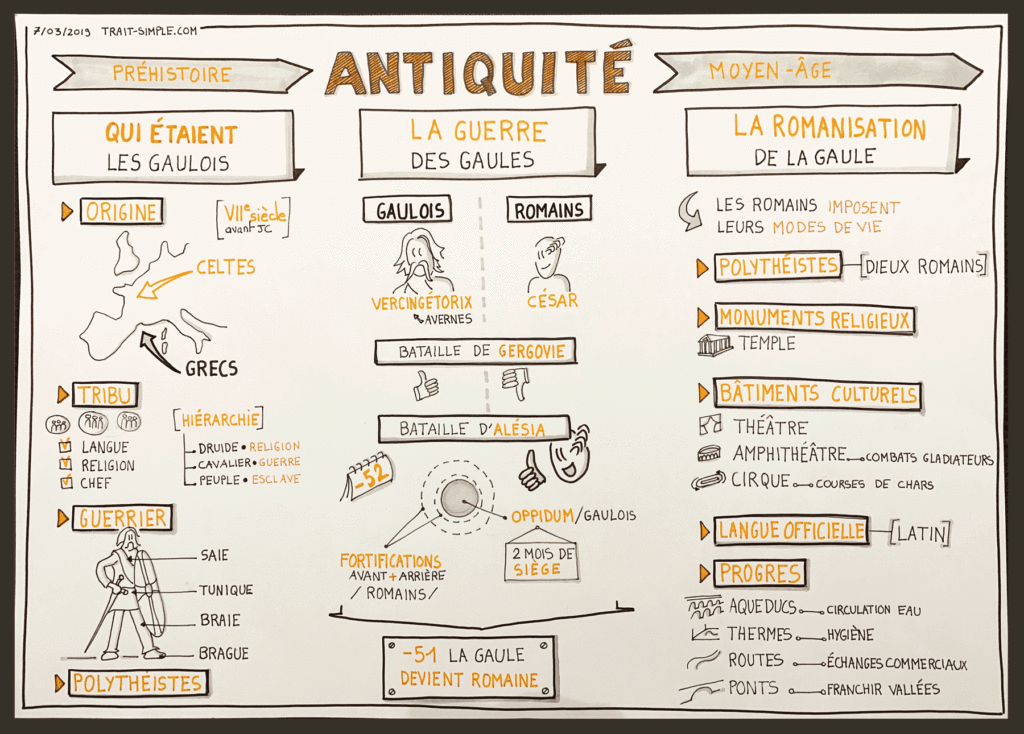 7/03/2019 TRAIT-SIMPLE.COM
PRÉHISTOIRE
ANTIQUITÉ
MOYEN-ÂGE
QUI ÉTAIENT
LES GAULOIS
ORIGINE
VIIe siècle
avant JC
CELTES
GRECS
TRIBU
LANGUE
RELIGION
CHEF
HIÉRARCHIE
DRUIDE • RELIGION
CAVALIER • GUERRE
PEUPLE • ESCLAVE
GUERRIER
SAIE
TUNIQUE
BRAIE
BRAGUE
POLYTHÉISTES
LA GUERRE
DES GAULES
GAULOIS
ROMAINS
VERCINGÉTORIX
AVERNES
CÉSAR
BATAILLE DE GERGOVIE
BATAILLE D'ALÉSIA
-52
OPPIDUM/GAULOIS
2 MOIS DE
SIÈGE
FORTIFICATIONS
AVANT + ARRIÈRE
/ROMAINS/
-51 LA GAULE
DEVIENT ROMAINE
LA ROMANISATION
DE LA GAULE
LES ROMAINS IMPOSENT
LEURS MODES DE VIE
POLYTHÉISTES [DIEUX ROMAINS]
MONUMENTS RELIGIEUX
TEMPLE
BÂTIMENTS CULTURELS
THÉÂTRE
AMPHITHÉÂTRE COMBATS GLADIATEURS
CIRQUE COURSES DE CHARS
LANGUE OFFICIELLE [LATIN]
PROGRES
AQUEDUCS CIRCULATION EAU
THERMES HYGIÈNE
ROUTES ÉCHANGES COMMERCIAUX
PONTS FRANCHIR VALLÉES